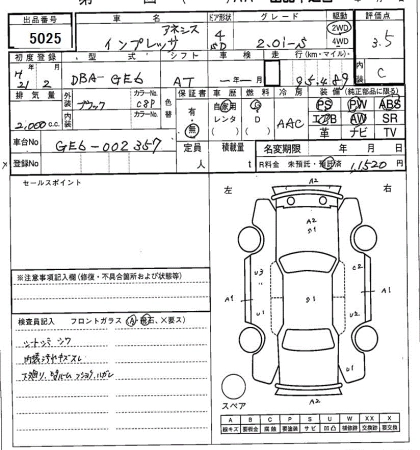 出品番号 車名 ドア形状 グレード 駆動 評価点
5025 インプレッサ アネシス 4 SD 2.0i-S 2WD 4WD 3.5
初度登録 型式 シフト 車検 走行(km・マイル) 内装
H21年2月 DBA-GE6 AT 年 月 95,489 C
排気量 外装 カラーNo. 色替 保証書 車歴 燃費 冷房 装備(純正部品に限る)
2,000cc ブラック 有・無 自家用 レンタ ( ) G D ( ) AAC PS PW ABS
エアB AW SR
革 ナビ TV
車台No GE6-002357 定員 積載量 名変期限 年 月 日
登録No 人 t R料金 未預託・預託済 11,520円
セールスポイント
左 右
A2
A2
U3 C2
A1 U2 U1 A1
U1
U1
A2
※注意事項記入欄(修復・不具合箇所および状態等)
検査員記入 フロントガラス(A・飛石、×要ス)
シートシミ シワ
スペア
A B C P S U W X XX
線キズ 要板金 腐蝕 要塗装 サビ 凹凸 補修跡 要交換 交換済